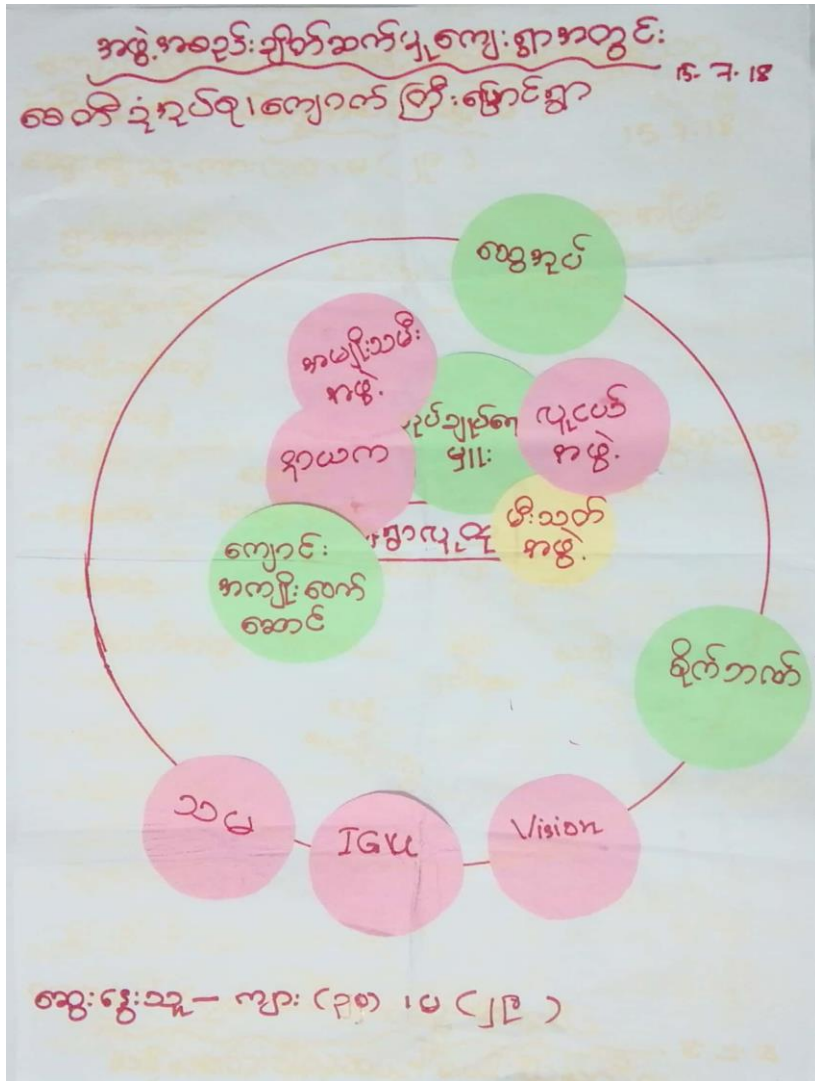 အဖွဲ့အစည်းချိတ်ဆက်မှုကျေးရွာအတွင်း
15.7.18
စေတီခုံအုပ်စု၊ကျောက်ကြီးပြောင်ရွာ
ထွေအုပ်
အမျိုးသမီး
အဖွဲ့
အုပ်ချုပ်ရေ
မှူး
လူငယ်
အဖွဲ့
ရာယက
ရွာလူထု
မီးသတ်
အဖွဲ့
ကျောင်း
အကျိုးတော်
ဆောင်
စိုက်ဘဏ်
သမ
IGU
Vision
ဆွေးနွေးသူ - ကျား (၃၈) ၊မ (၂၉)